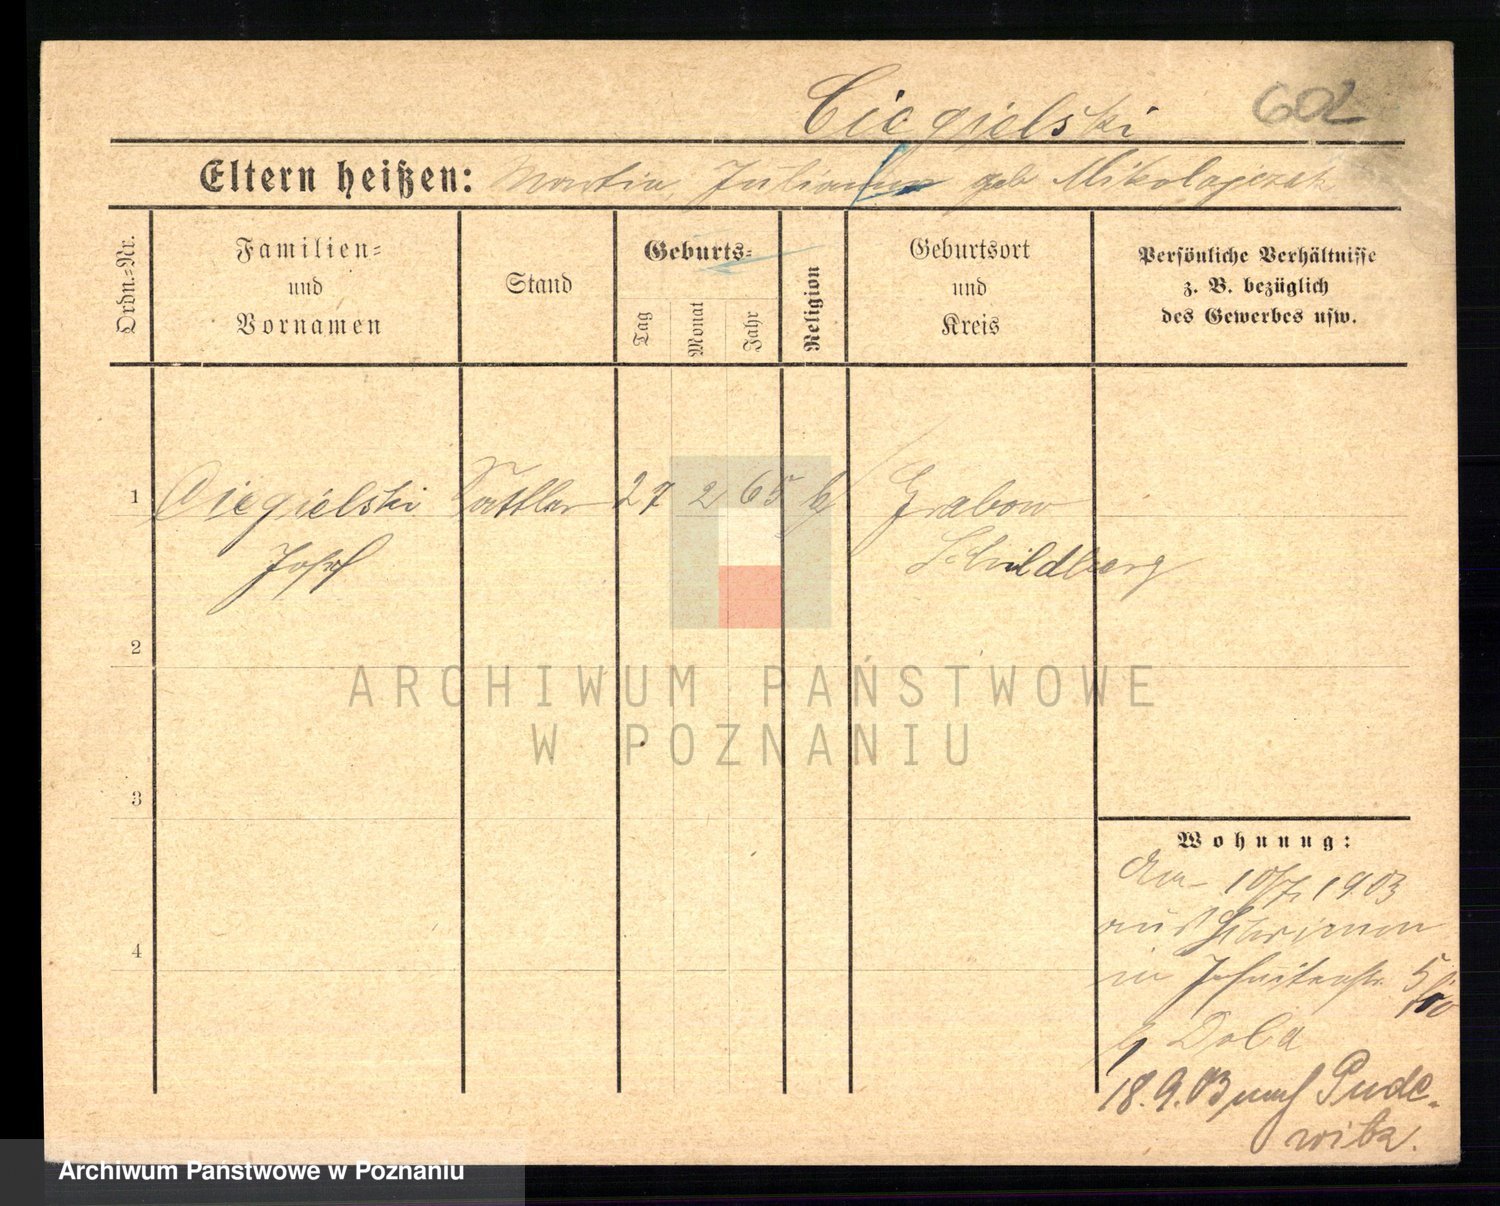 Ciegielski 602
Eltern heißen: Martin, Julianna geb Mikolajczak
Ordn.-Nr.
Familien-
und
Vornamen
Stand
Geburts-
Tag
Monat
Jahr
Religion
Geburtsort
und
Kreis
Persönliche Verhältnisse
z. B. bezüglich
des Gewerbes usw.
1 Ciegielski Sattler 27 2 65 k Grabow
Josef Schildberg
2
ARCHIWUM PAŃSTWOWE
W POZNANIU
3
Wohnung:
Am 10/7 1903
aus
in Jesuitenstr. 5
b Dola
4
18.9.03 nach Pude-
witz.
Archiwum Państwowe w Poznaniu